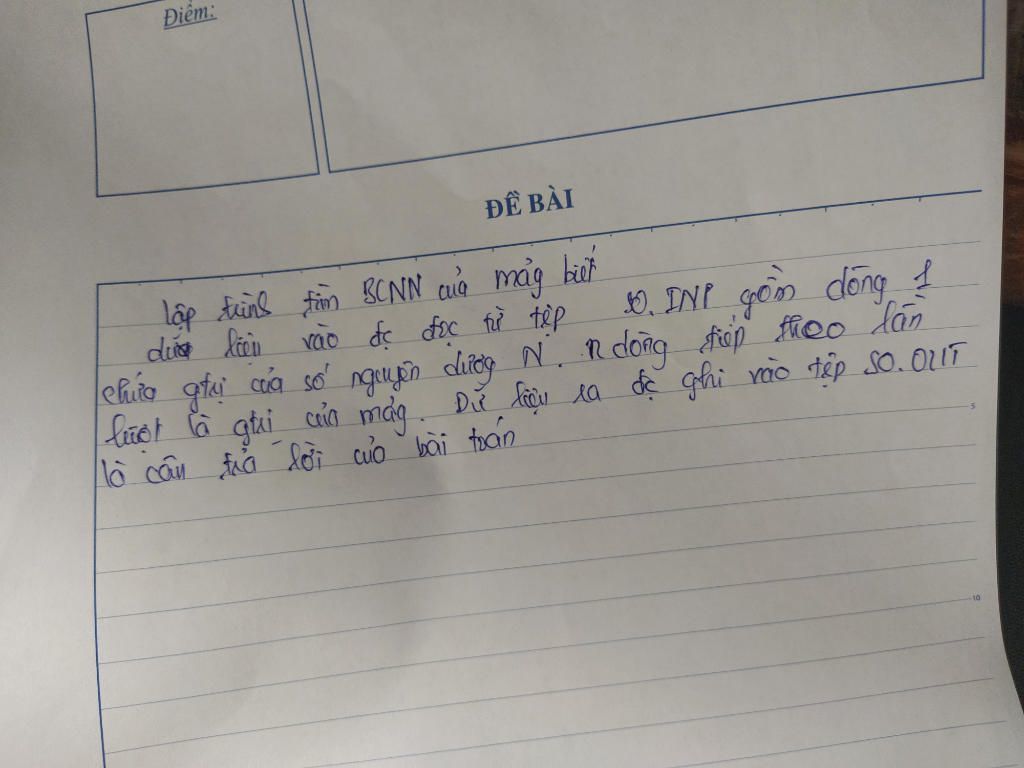 Điểm:
ĐỀ BÀI
lập trình tìm BCNN của mảg biết
dữ liệu vào đc đọc từ tệp SO.INP gồm dòng 1
chứa gtrị của số nguyên dương N. n dòng tiếp theo lần
lượt là gtrị của mảg. Dữ liệu ra đc ghi vào tệp SO.OUT
là câu trả lời của bài toán
5
10